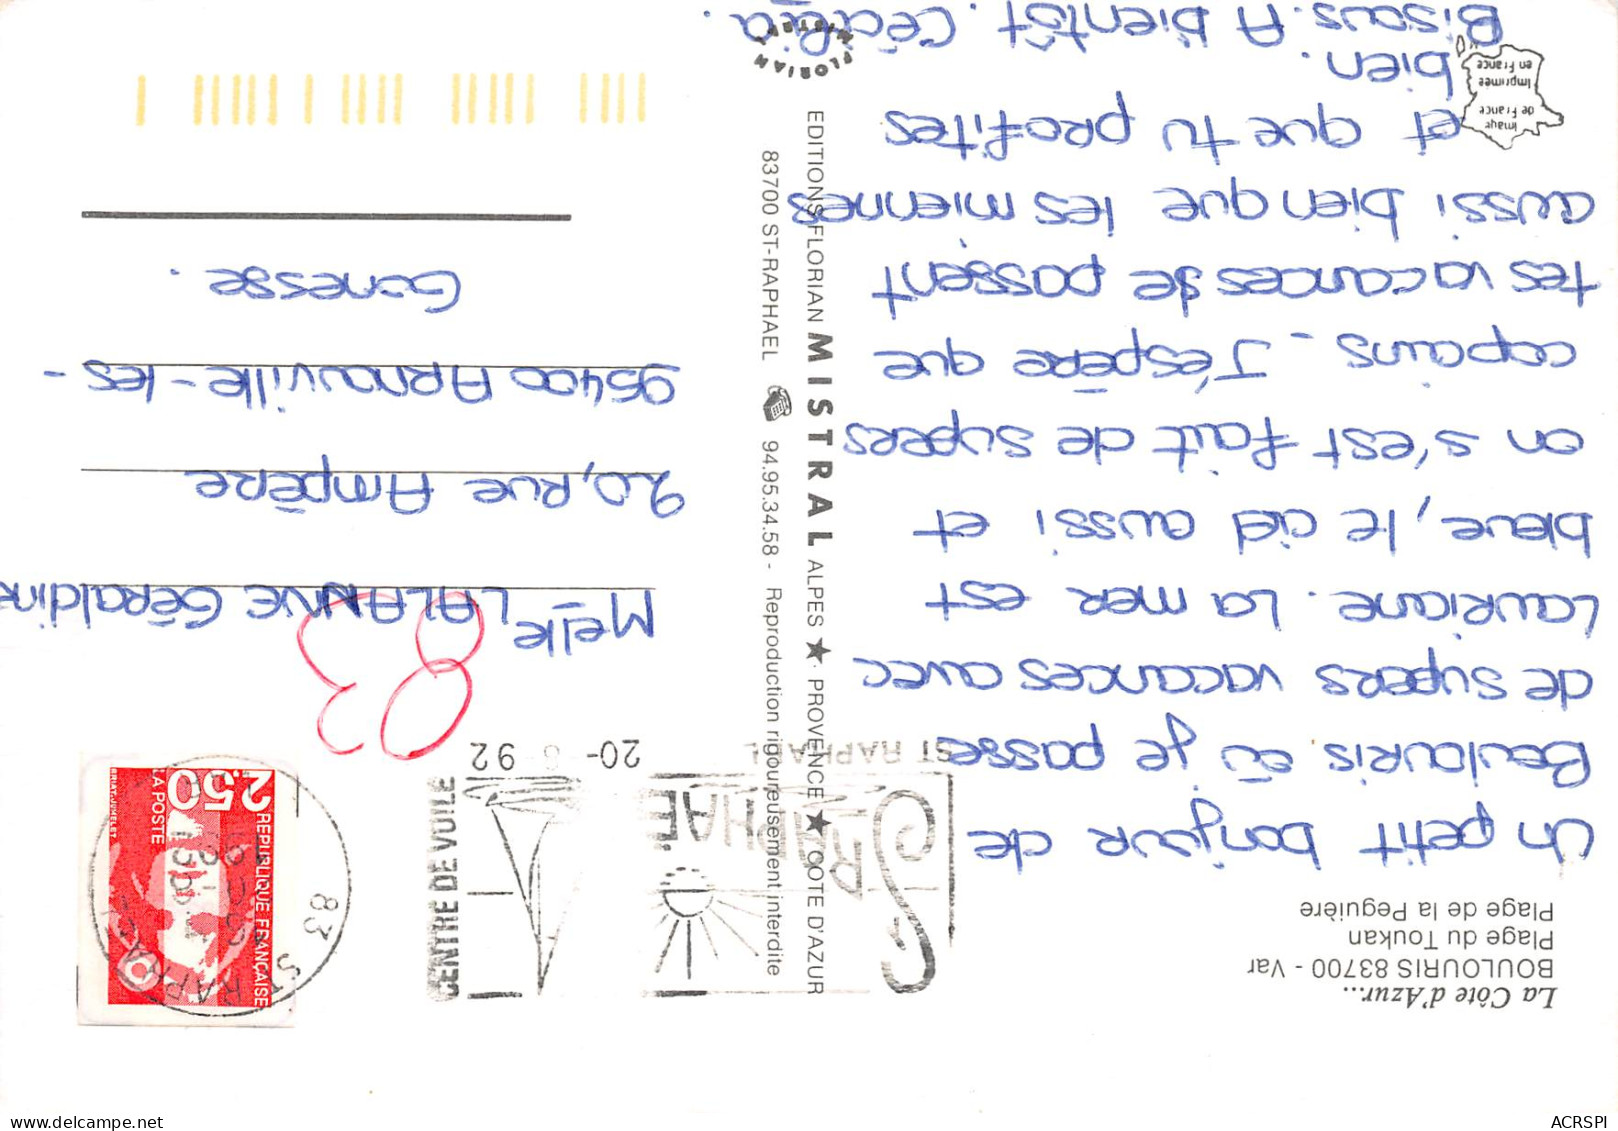 La Côte d'Azur...
BOULOURIS 83700 - Var
Plage du Toukan
Plage de la Peguière
Un petit bonjour de
Boulouris où je passe
de supers vacances avec
Lauriane. La mer est
bleue, le ciel aussi et
on s'est fait de supers
copains - J'espère que
tes vacances se passent
aussi bien que les miennes
et que tu profites
bien.
Bisous. A bientôt. Cécilia.
imayr
de France
imprimée
en France
EDITIONS FLORIAN MISTRAL ALPES ★ PROVENCE ★ COTE D'AZUR
83700 ST-RAPHAEL ☎ 94.95.34.58 - Reproduction rigoureusement interdite
FLORIAN
MISTRAL
ST RAPHAEL
20- 92
CENTRE DE VOILE
St RAPHAËL
83
ST RAPHAEL
REPUBLIQUE FRANÇAISE
2,50
LA POSTE
BRIAT-JUMELET
83
Melle LALANNE Géraldine
20, rue Ampère
95400 Arnouville-les-
Gonesse.
ACRSPI